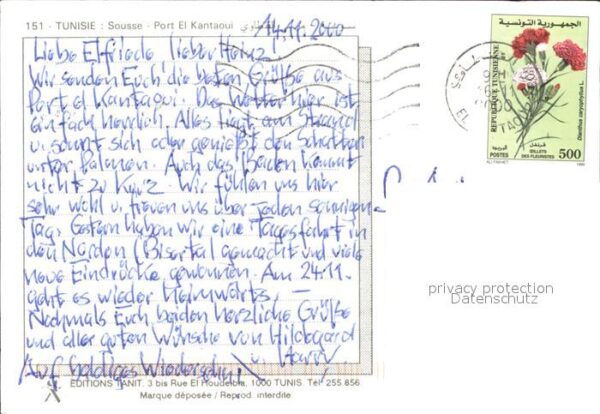 151 - TUNISIE : Sousse - Port El Kantaoui
14.11.2000
Liebe Elfriede lieber Heinz
Wir senden Euch die besten Grüße aus
Port el Kantaoui. Das Wetter hier ist
einfach herrlich. Alles liegt am Strand
u. sonnt sich oder genießt den Schatten
unter Palmen. Auch das Baden kommt
nicht zu kurz. Wir fühlen uns hier
sehr wohl u. freuen uns über jeden sonnigen
Tag. Gestern haben wir eine Tagesfahrt in
den Norden (Biserta) gemacht und viele
neue Eindrücke gewonnen. Am 24.11.
geht es wieder heimwärts. —
Nochmals Euch beiden herzliche Grüße
und alle guten Wünsche von Hildegard
Auf baldiges Wiedersehn! u. Harry
EDITIONS TANIT. 3 bis Rue El Houdeibia, 1000 TUNIS. Tél 255.856.
Marque déposée / Reprod. interdite
الجمهورية التونسية
REPUBLIQUE TUNISIENNE
Dianthus caryophyllus L.
قرنفل
البريد
POSTES
OEILLETS
DES FLEURISTES
500
privacy protection
Datenschutz